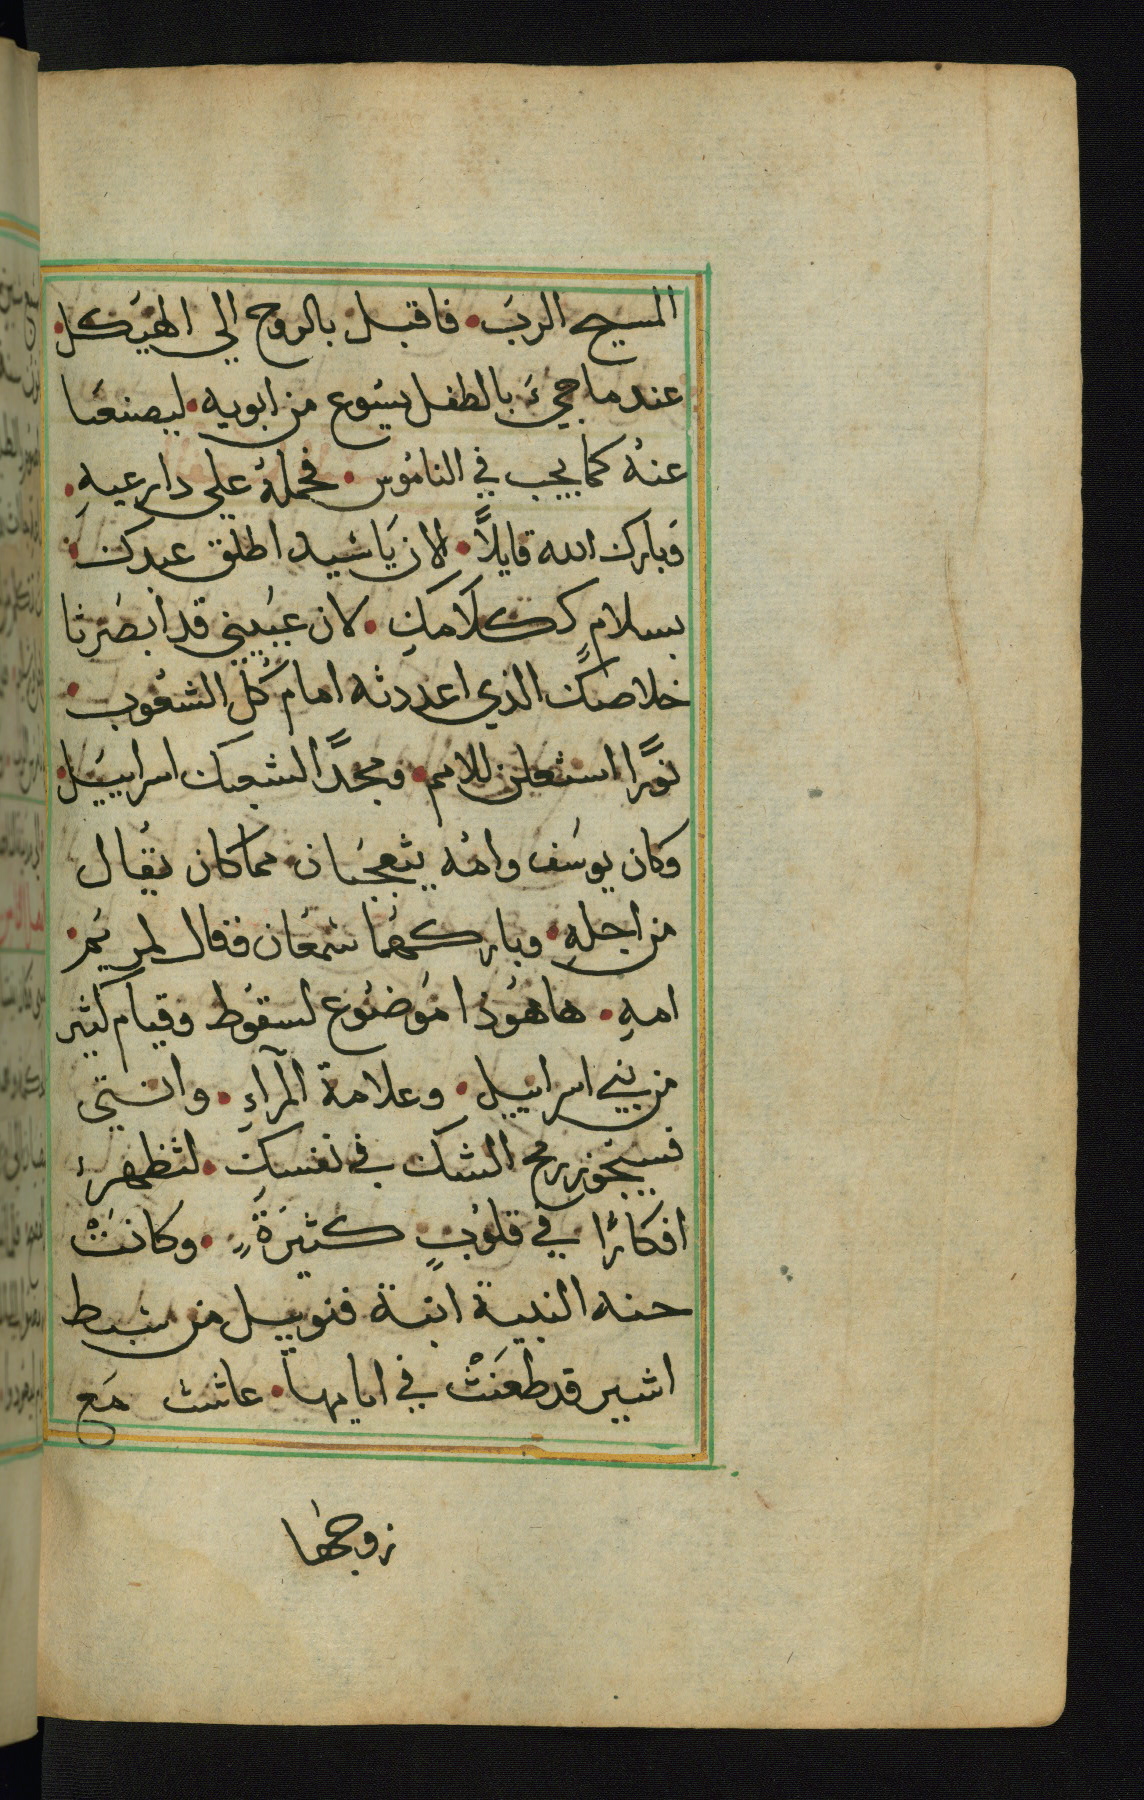 المسيح الرب • فاقبل بالروح الي الهيكل •
عندما جيَ بالطفل يسوع من ابويه • ليصنعا
عنه كما يجب في الناموس • فحمله علي دارعيه •
وبارك الله قايلاً • الان يا سيد اطلق عبدك •
بسلامٍ ككلامك • لان عينيي قد ابصرثا
خلاصك الذي اعددثه امام كل الشعوب •
نورًا استعلن للامم • ومجدًا لشعبك اسراييل •
وكان يوسف وامه يثعجبان • مما كان يقال
من اجله • وباركهما سمعان فقال لمريم •
امهِ • هاهوذا موضوع لسقوط وقيام كثير
من بني اسراييل • وعلامة المرآءِ • وانتي
فسيجوز رمح الشك في نفسكِ • لثظهر
افكارًا في قلوبٍ كثيرةٍ • وكانثْ
حنه النبية ابنة فنوييل من سبط
اشير قد طعنَثْ في ايامها • عاشث مع
زوجها